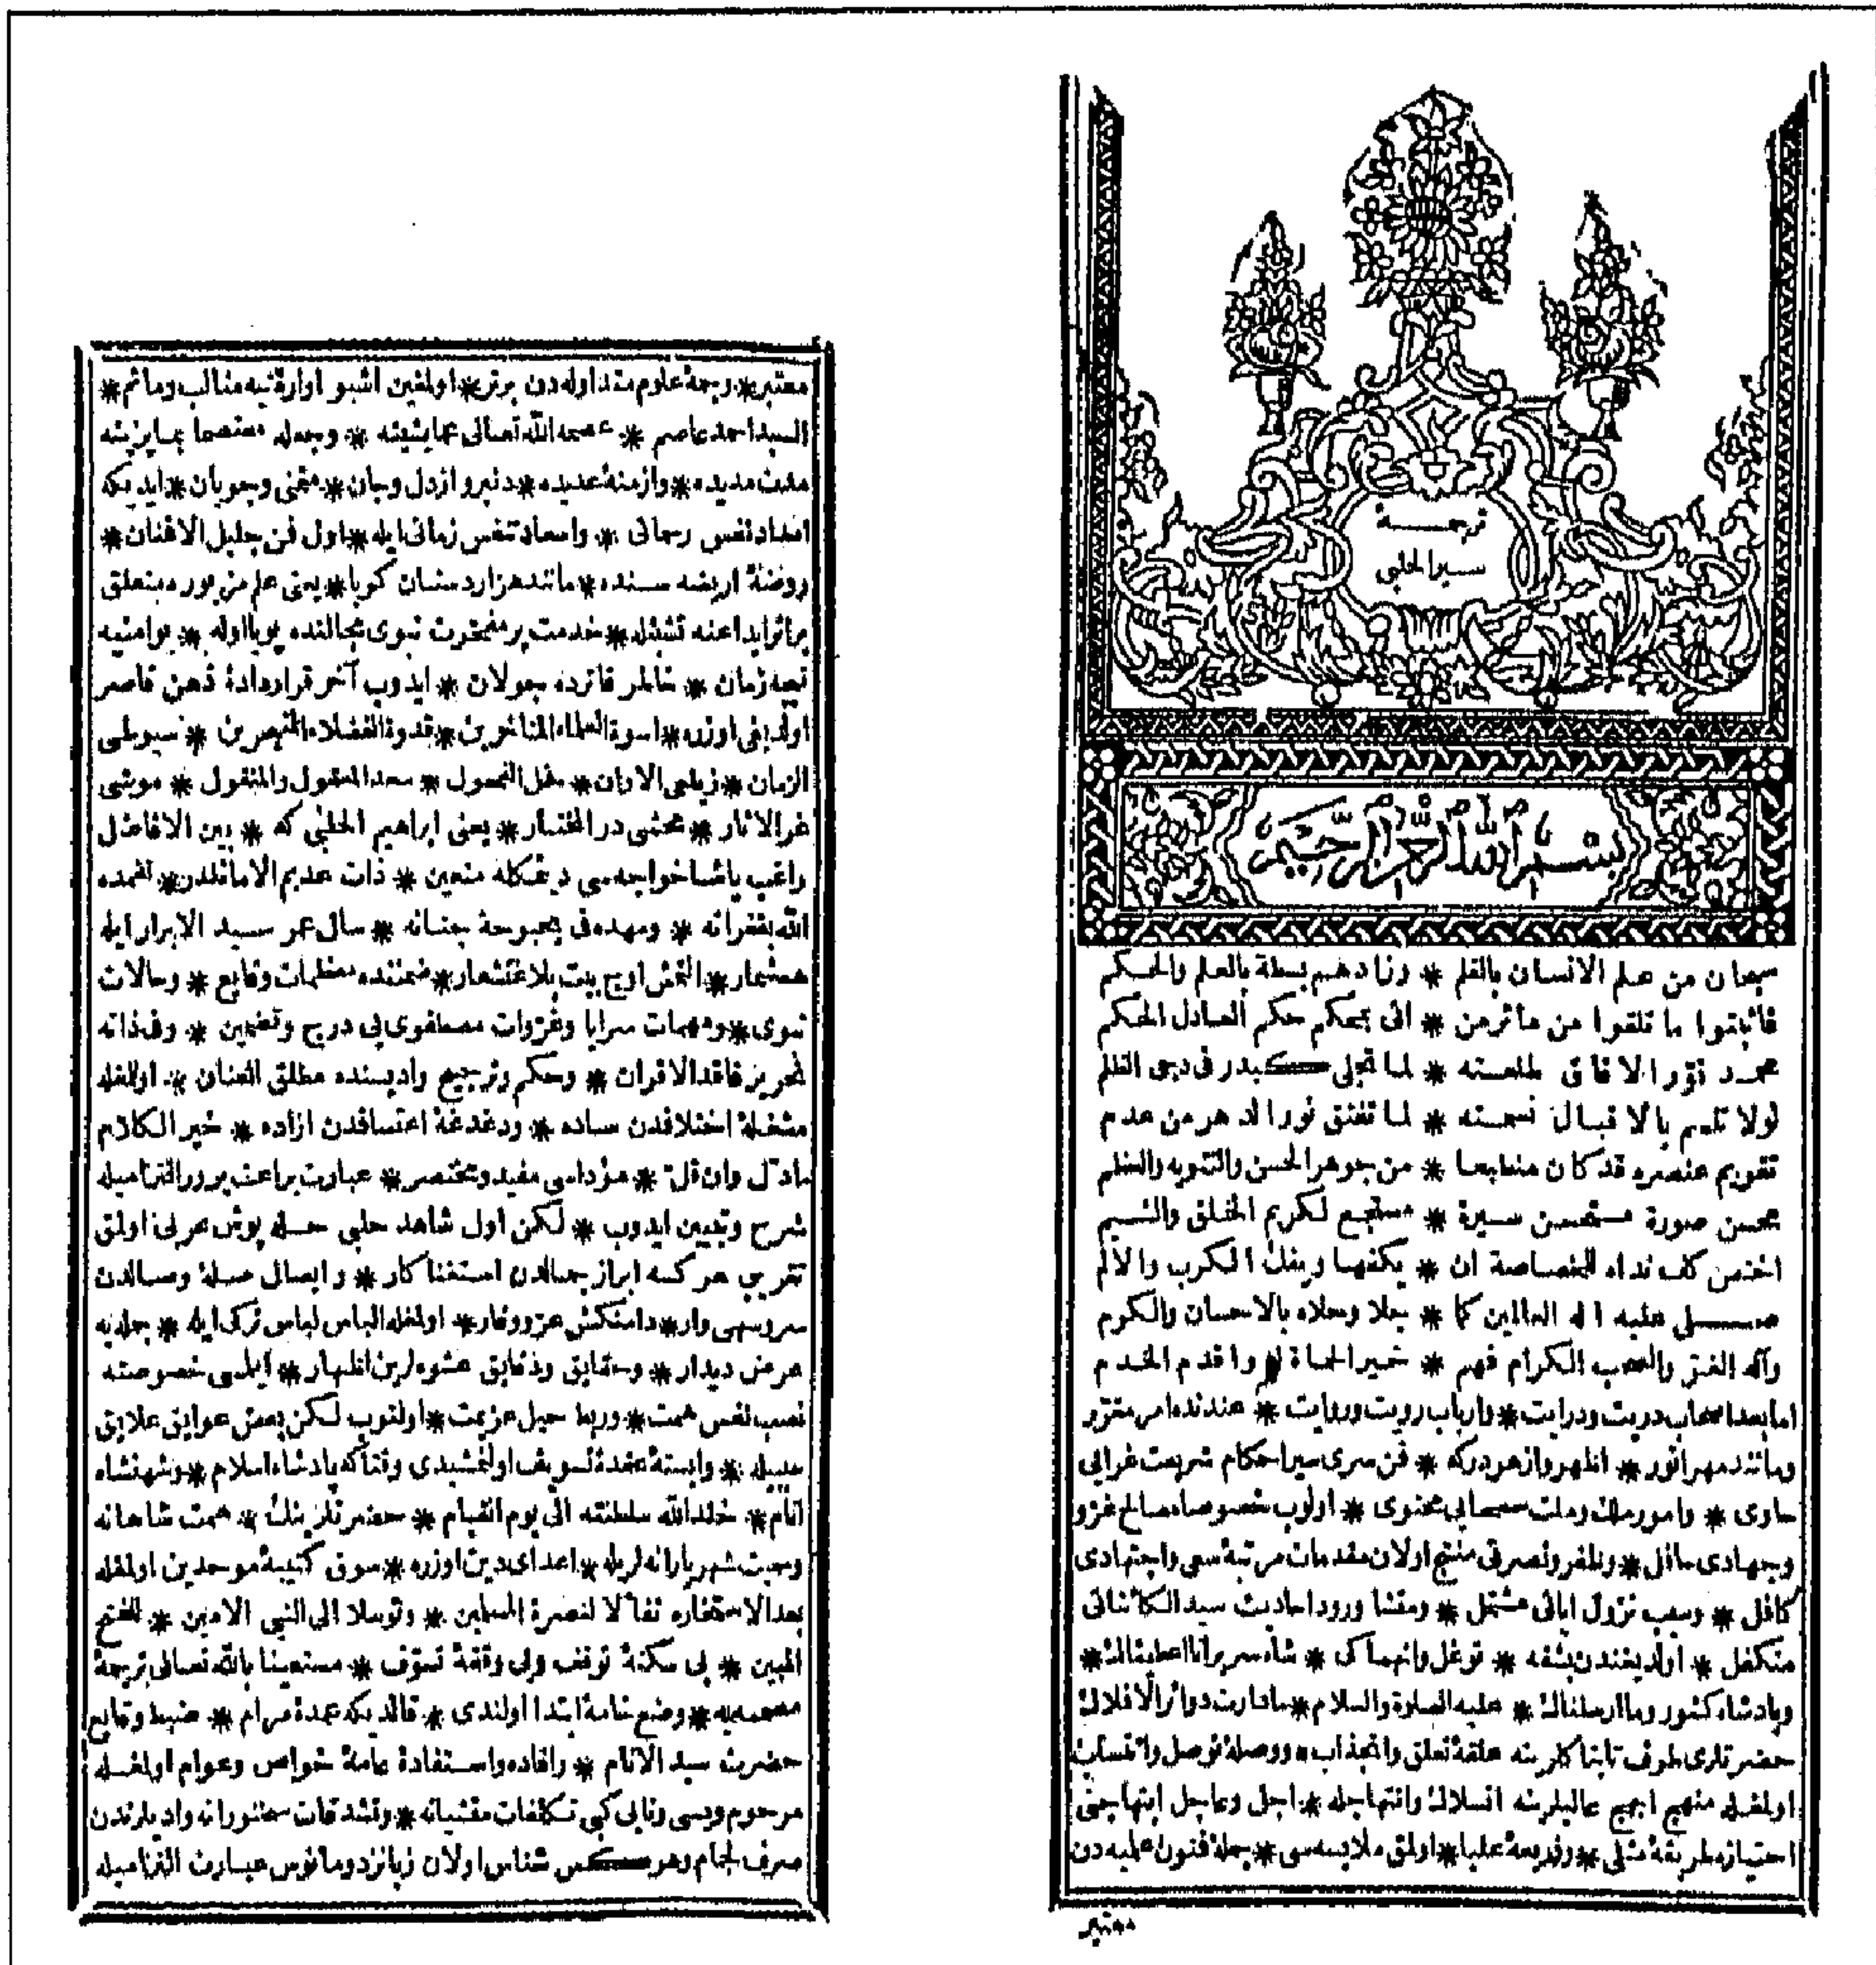 ترجمة
سير الحلبي
بسم الله الرحمن الرحيم
سبحان من علم الانسان بالقلم * وزادهم بسطة بالعلم والحكم
فاثبتوا ما تلقوا من مآثر من * اتى بمحكم حكم العادل الحكم
محمد نور الافاق طلعته * لما تجلى كبدر فى دجى الظلم
لولا تلم بالاقبال نسمته * لما تفتق نور الدهر من عدم
تقويم عنصره قد كان منطبعا * من جوهر الحسن والتنويه والعظم
محسن صورة مستحسن سيرة * مستجمع لكريم الخلق والشيم
اختص كف نداه للخصاصة ان * يكفها ويفك الكرب والالم
صلى عليه اله العالمين كما * جلا وحلاه بالاحسان والكرم
وآله الغر والصحب الكرام فهم * خير الحماة واقدم الخدم
اما بعد اصحاب دريت ودرايت * وارباب رويت وروايت * عندنده امر مقرر
ومانند مهر انور * اظهر وازهردركه * فن سرى سير احكام شريعت غرايى
حاوى * وامور ملك وملت سمحايى محتوى * اولوب خصوصا مصالح غزو
وجهادى حافل * وظفر ونصرتى منتج اولان مقدمات مرتبۀ سعى واجتهادى
كافل * وسبب نزول اياتى مشتمل * ومنشا ورود احاديث سيد الكائناتى
متكفل * اولديغندن بشقه * توغل وانهماكى * شاه سرير انا اعطيناك *
وپادشاه كشور وما ارسلناك * عليه الصلوة والسلام * مادارت دوائر الافلاك
حضرتلرى طرف تابناكلرينه علقۀ تعلق وانجذاب * ووصلۀ توصل وانتساب
اولمغله منهج ابهج عاليلرينه انسلاك وانتهاجله * اجل وعاجل ابتهاجنى
احتيازه طريقۀ مثلى * وذريعۀ عليا * اولمق ملابسه سى * جملۀ فنون علميه دن
معتبر
معتبر * وجملۀ علوم متداوله دن برتر * اولمغين اشبو اوارۀ تيه مثالب وماثم *
السيد احمد عاصم * عصمه الله تعالى عما يشينه * وجعله معتصما بما يزينه
مدت مديده * وازمنۀ عديده * دنبرو از دل وجان * متمنى وجويان * ايديكه
امداد نفس رحمانى * واسعاد تنفس زمانى ايله * اول فن جليل الافنان *
روضۀ اريضه سنده * مانند هزاردستان كويا * يعنى علم مزبوره متعلق
براثر ابداعنه تشبثله * خدمت پرمفخرت نبوى مجالنده پويا اوله * بو امنيه
نيچه زمان * خاطر فاترده جولان * ايدوب آخر قراردادۀ ذهن قاصر
اولديغى اوزره * اسوة العلماء المتاخرين * قدوة الفضلاء المتبحرين * سيوطى
الزمان * زيلعى الاوان * مفل الفحول * سعد المعقول والمنقول * موشى
غرر الاثار * محشى در المختار * يعنى ابراهيم الحلبى كه * بين الافاضل
راغب پاشا خواجه سى ديمكله متعين * ذات عديم الاماثلدر * تغمده
الله بغفرانه * ومهده فى بحبوحة جنانه * سال عمر سيد الابرار ايله
همشمار * التمش اوچ بيت بلاغتشعار * ضمننده معظمات وقايع * وحالات
نبوى * ومهمات سرايا وغزوات مصطفوى يى درج وتضمين * وفى ذاته
نحرير فاقد الاقران * وحكم وترجيح واديسنده مطلق العنان * اولمغله
مشغلۀ اختلافدن ساده * ودغدغۀ اعتسافدن ازاده * خير الكلام
ما دل وان قل * مؤداسى مفيد ومختصر * عبارت براعت پرور التزاميله
شرح وتبيين ايدوب * لكن اول شاهد حلبى حله پوش عربى اولمق
تقريبى هركسه ابراز جمالدن استغناكار * وايصال صلۀ وصالدن
سروسهى وار * دامنكش عز ووقار * اولمغله الباس لباس تركى ايله * جمله يه
عرض ديدار * وحقايق ودقايق عشوه لرين اظهار * ايلمسى خصوصنه
نصب نفس همت * وربط حبل عزيمت * اولنوب لكن بعض عوايق علايق
سببيله * وابستۀ عقدۀ تسويف اولمشيدى وقتاكه پادشاه اسلام * وشهنشاه
انام * خلد الله سلطنته الى يوم القيام * حضرتلرينك * همت شاهانه
وحميت شهريارانه لريله * اعداى دين اوزره * سوق كتيبۀ موحدين اولمغله
بعد الاستخاره تفألا لنصرة المسلمين * وتوسلا الى النبى الامين * للفتح
المبين * بى سكتۀ توقف وبى وقفۀ تسوف * مستعينا بالله تعالى ترجمۀ
مصممه يه * وضع خامۀ ابتدا اولندى * قالديكه عمدۀ مرام * ضبط وقايع
حضرت سيد الانام * وافاده واستفادۀ عامۀ خواص وعوام اولمغله
مرحوم ويسى ونابى كبى تكلفات منشيانه * وتشدقات سخنورانه واديلرندن
صرف لجام وهركس شناس اولان زبانزد ومانوس عبارت التزاميله